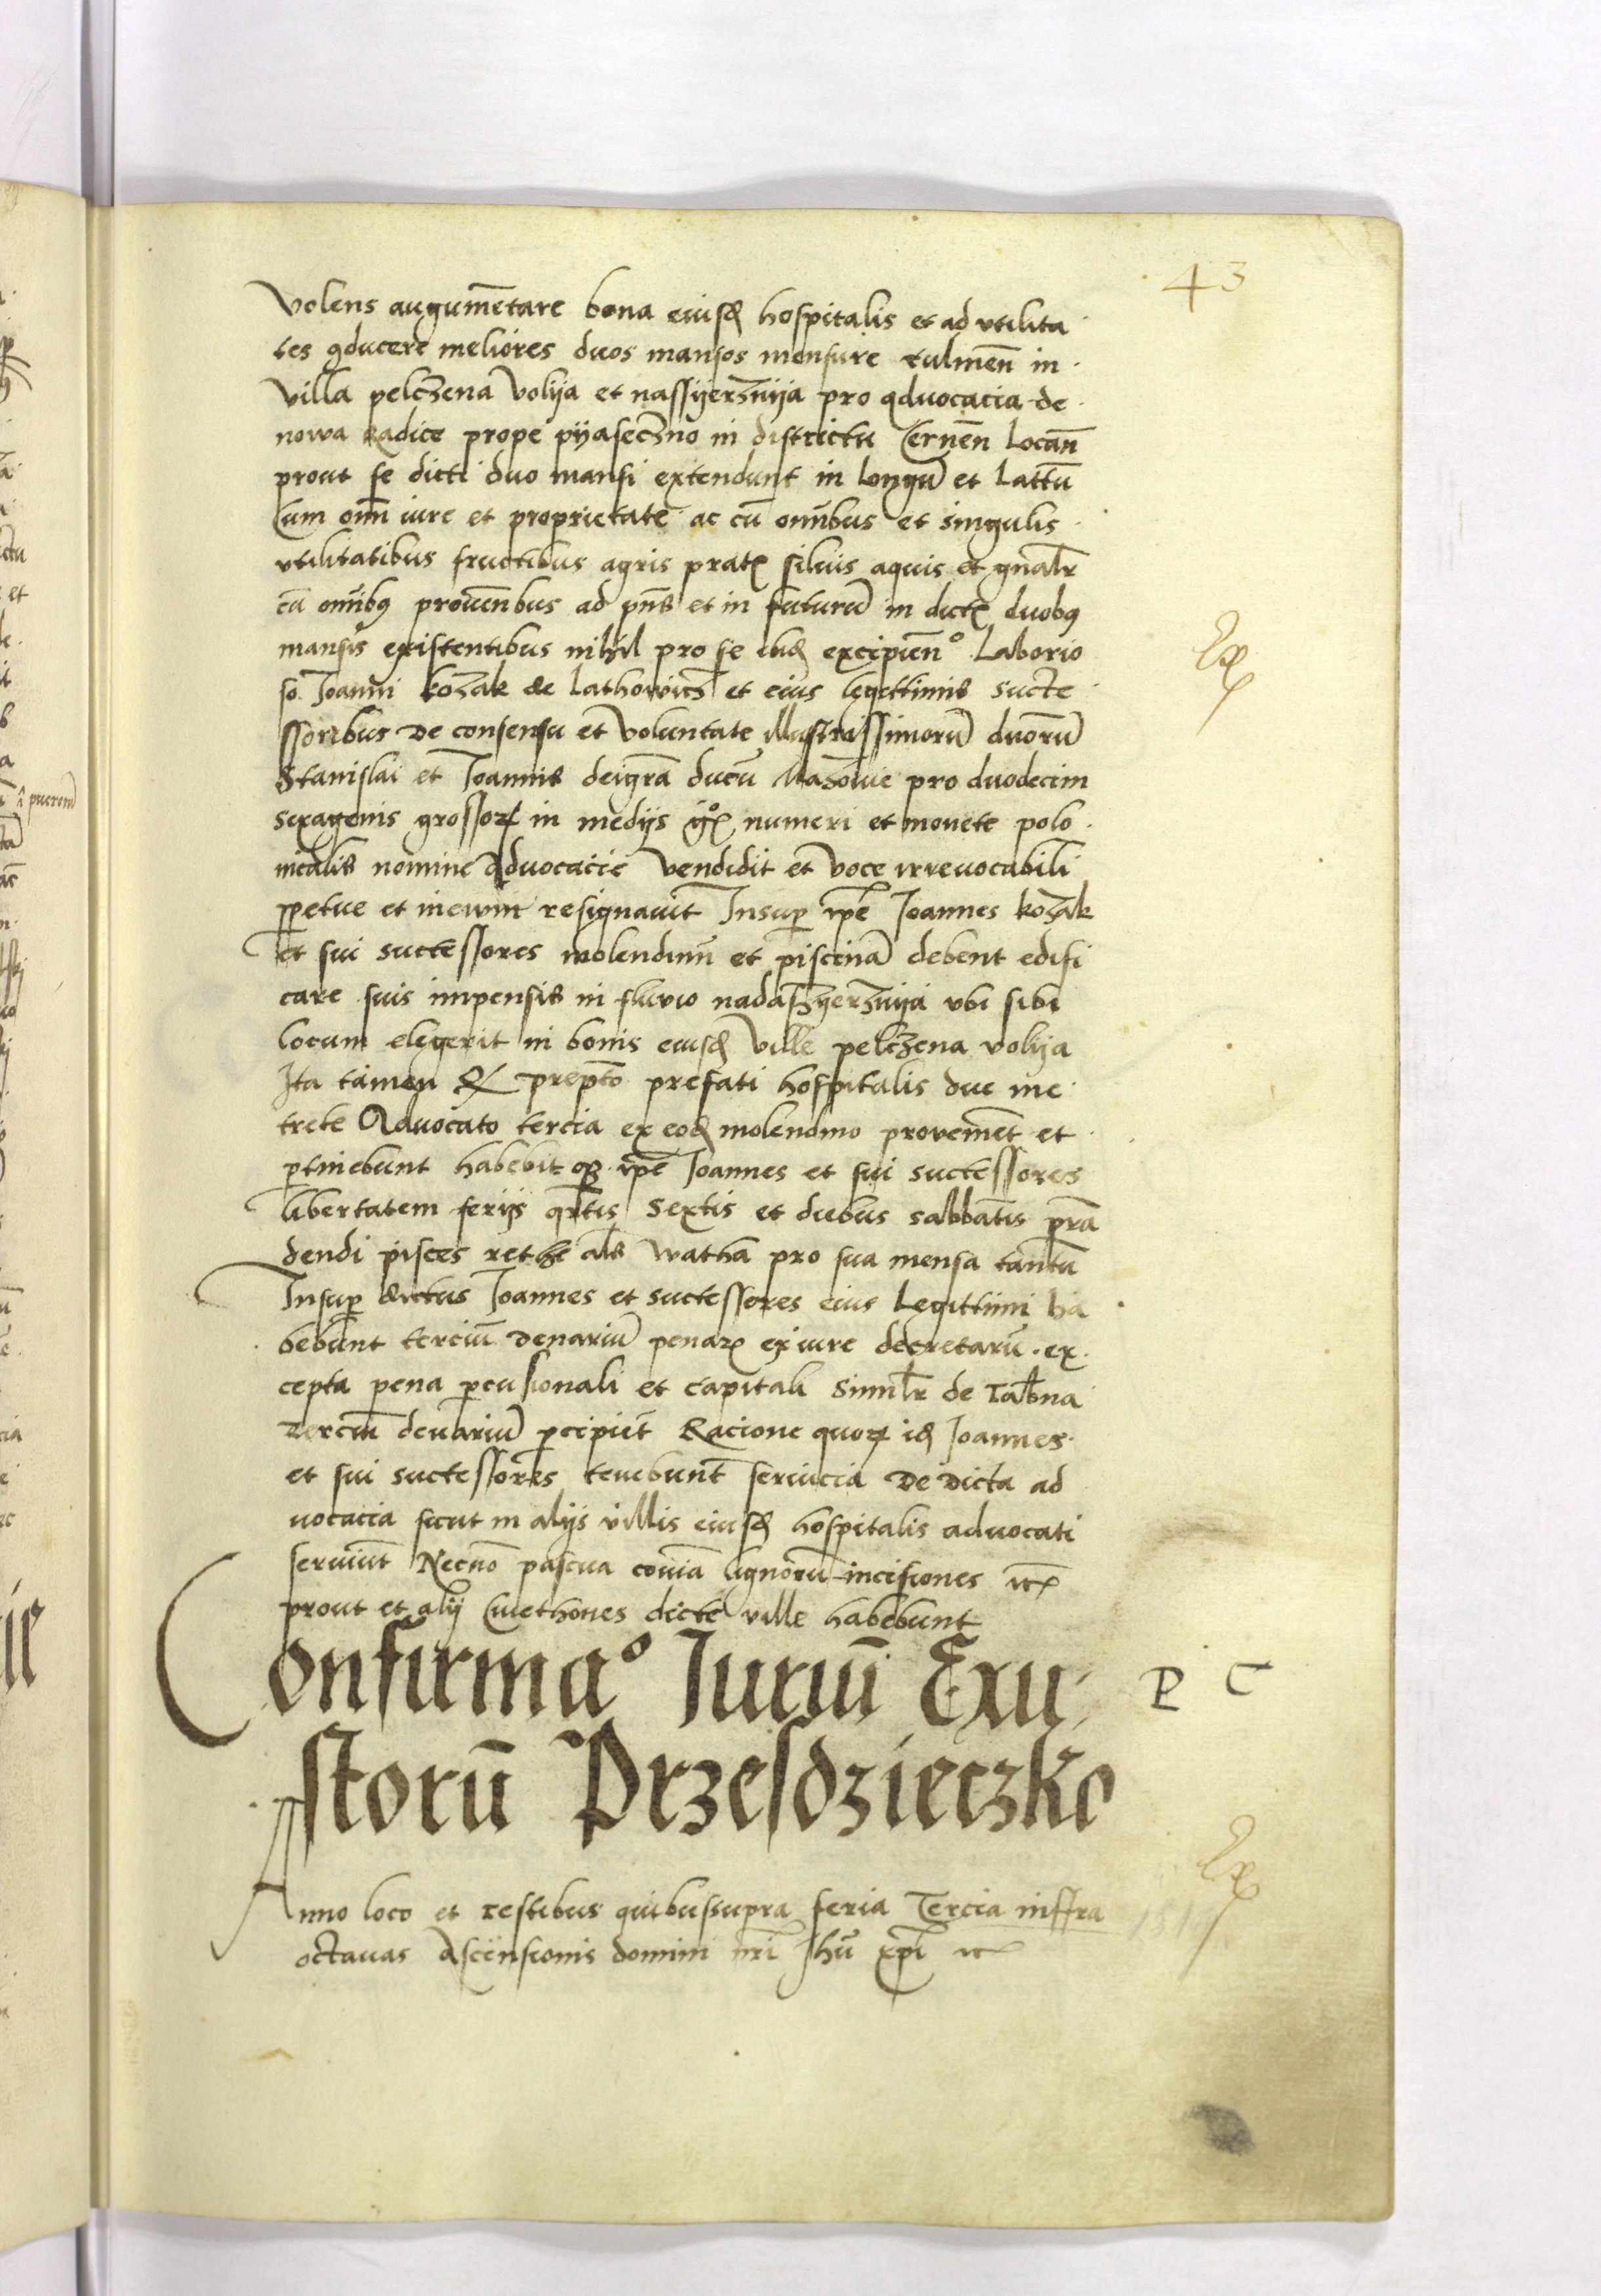 43
volens augumētare bona eiusđ hospitalis et ad vtilita
tes ꝯducere meliores duos mansos mensure culmeñ in
villa pelczena volija et nassijerznija pro aduocacia de
nowa radice prope pijaseczno in districtu Cerneñ locañ
prout se dicti duo mansi extendunt in longũ et lattũ
Cum om̃i iure et proprietate ac cũ omĩbus et singulis
vtilitatibus fructibus agris pratꝭ siluis aquis et gñalr̃
cũ omĩbꝯ prouenñbus ad pñs et in futurũ in dictꝭ duobꝯ
mansis existentibus nihil pro se ibiđ excipienº Laborio
so Joanni kozak de lathowicz et eius legittimis succe
ssoribus de consensu et voluntate illustrissimorũ duorũ
Stanislai et Joannis dei grã ducũ Mazouie pro duodecim
sexagenis grossoꝝ in medijs gꝭ numeri et monete polo
nicalis nomine Aduocacie vendidit et voce irreuocabili
ꝑpetue et ineuũ resignauit Insuꝑ ip̃e Joannes kozak
et sui successores molendinũ et piscinã debent edifi
care suis impensis in fluuio nadaszijerznija vbi sibi
locum elegerit in bonis eiusđ ville pelczena volija
Ita tamen qꝫ prepto prefati hospitalis due me
trete Aduocato tercia ex eođ molendino proueniẽt et
ꝑtinebunt habebit qꝫ ip̃e Joannes et sui successores
libertatem ferijs qrtis sextis et diebus sabbatis
dendi pisces rethe als watha pro sua mensa tantũ
Insuꝑ dictus Joannes et successores eius Legittimi ha
bebunt terciũ denariũ penaꝝ ex iure decretarũ ex
cepta pena ꝑcusionali et capitali Simil̃r de Tab̃na
terciũ denariũ ꝑcipiẽt Racione quoꝝ iđ Joannes
et sui successores tenebunt̃ seruicia de dicta ad
uocacia sicut in alijs villis eiusđ hospitalis aduocati
seruiũt Necnõ pascua cõuia lignorũ incisiones ꝛcꝭ
prout et alij Cmethones dicte ville habebunt
Confirmaº Juriũ Exu
storũ Przesdzieczko
P C
Anno loco et testibus quibussupra feria Tercia inffra
octauas Ascensionis domini nr̃i Jhũ xp̃i ꝛc